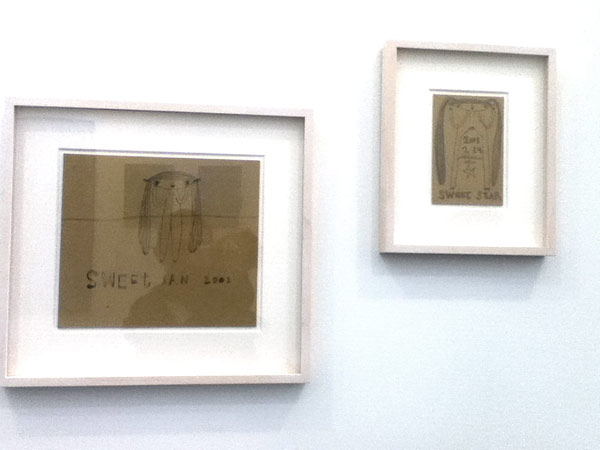 SWEET JAN 2001
2001
SWEET STAR